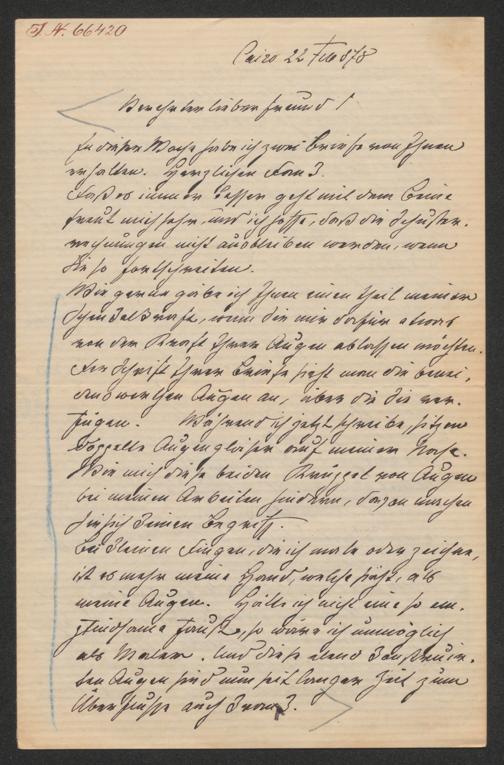 I.N. 66420
Cairo 22 Feb 878
Verehrter lieber Freund!
In dieser Woche habe ich zwei Briefe von Ihnen
erhalten. Herzlichen Dank.
Daß es immer besser geht mit dem Beine
freut mich sehr, und ich hoffe, daß die Schuster-
rechnungen nicht ausbleiben werden, wenn
Sie so fortschreiten.
Wie gerne gäbe ich Ihnen einen Theil meiner
Schenkelkraft, wenn Sie mir dafür etwas
von der Kraft Ihrer Augen ablassen möchten.
Der Schrift Ihrer Briefe sieht man die benei-
denswerthen Augen an, über die Sie ver-
fügen. Während ich jetzt schreibe, sitzen
doppelte Augengläser auf meiner Nase.
Wie mich diese beiden Krüppel von Augen
bei meinen Arbeiten hindern, davon machen
Sie sich keinen Begriff.
Bei kleinen Dingen, die ich male oder zeichne,
ist es mehr meine Hand, welche sieht, als
meine Augen. Hätte ich nicht eine so em-
pfindsame Faust, so wäre ich unmöglich
als Maler. Und diese elend konstruir-
ten Augen sind nun seit langer Zeit zum
Überflusse auch krank.